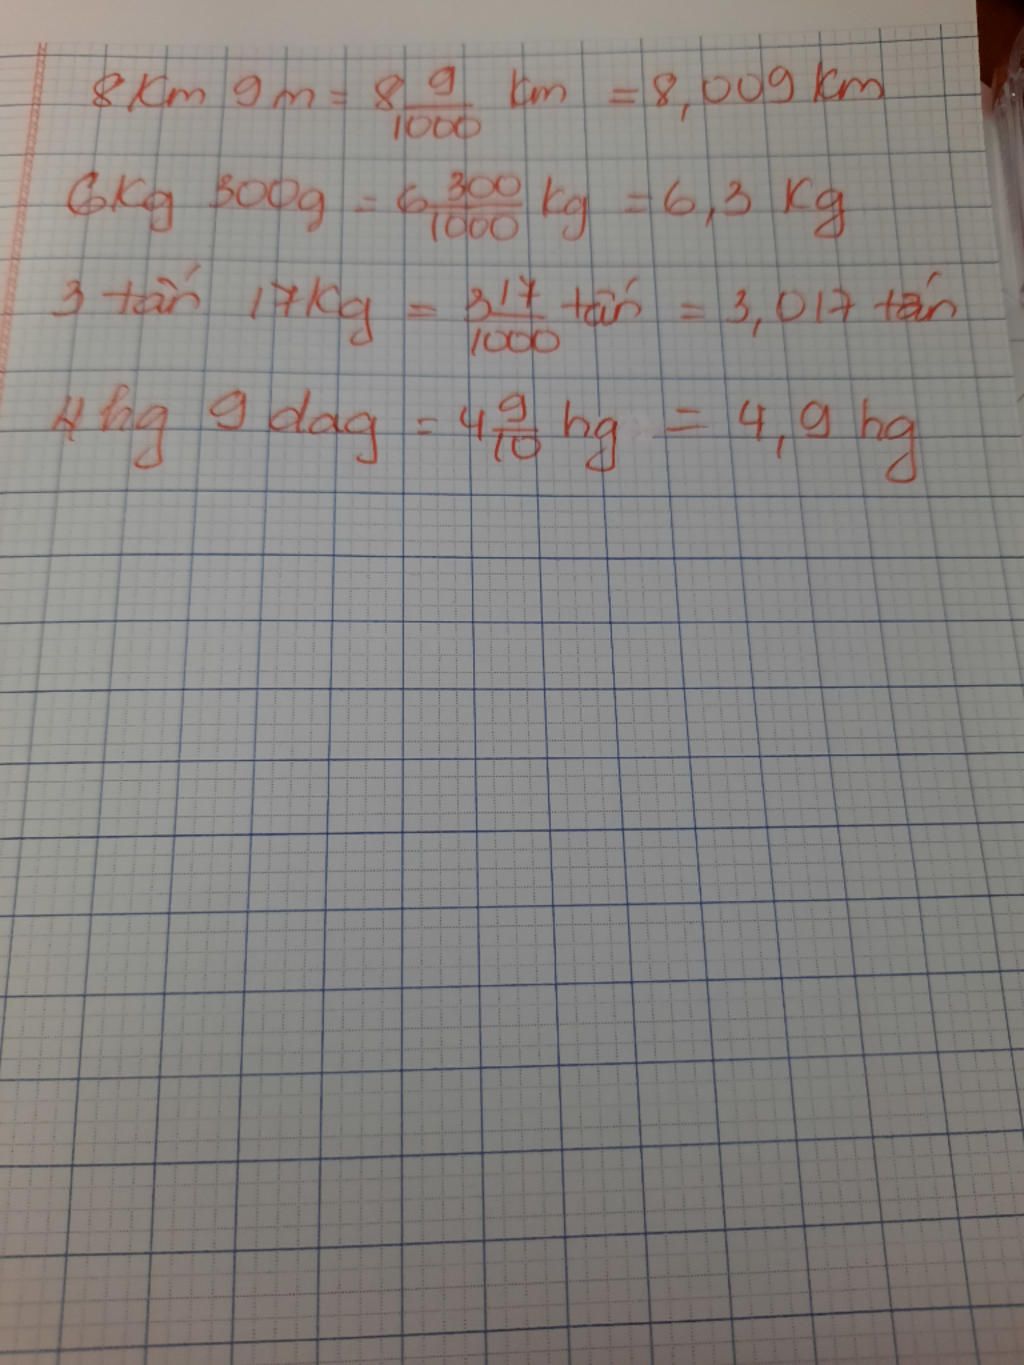 8Km 9m = 8 9/1000 km = 8,009 km
6Kg 300g = 6 300/1000 kg = 6,3 Kg
3 tấn 17Kg = 3 17/1000 tấn = 3,017 tấn
4 hg 9 dag = 4 9/10 hg = 4,9 hg